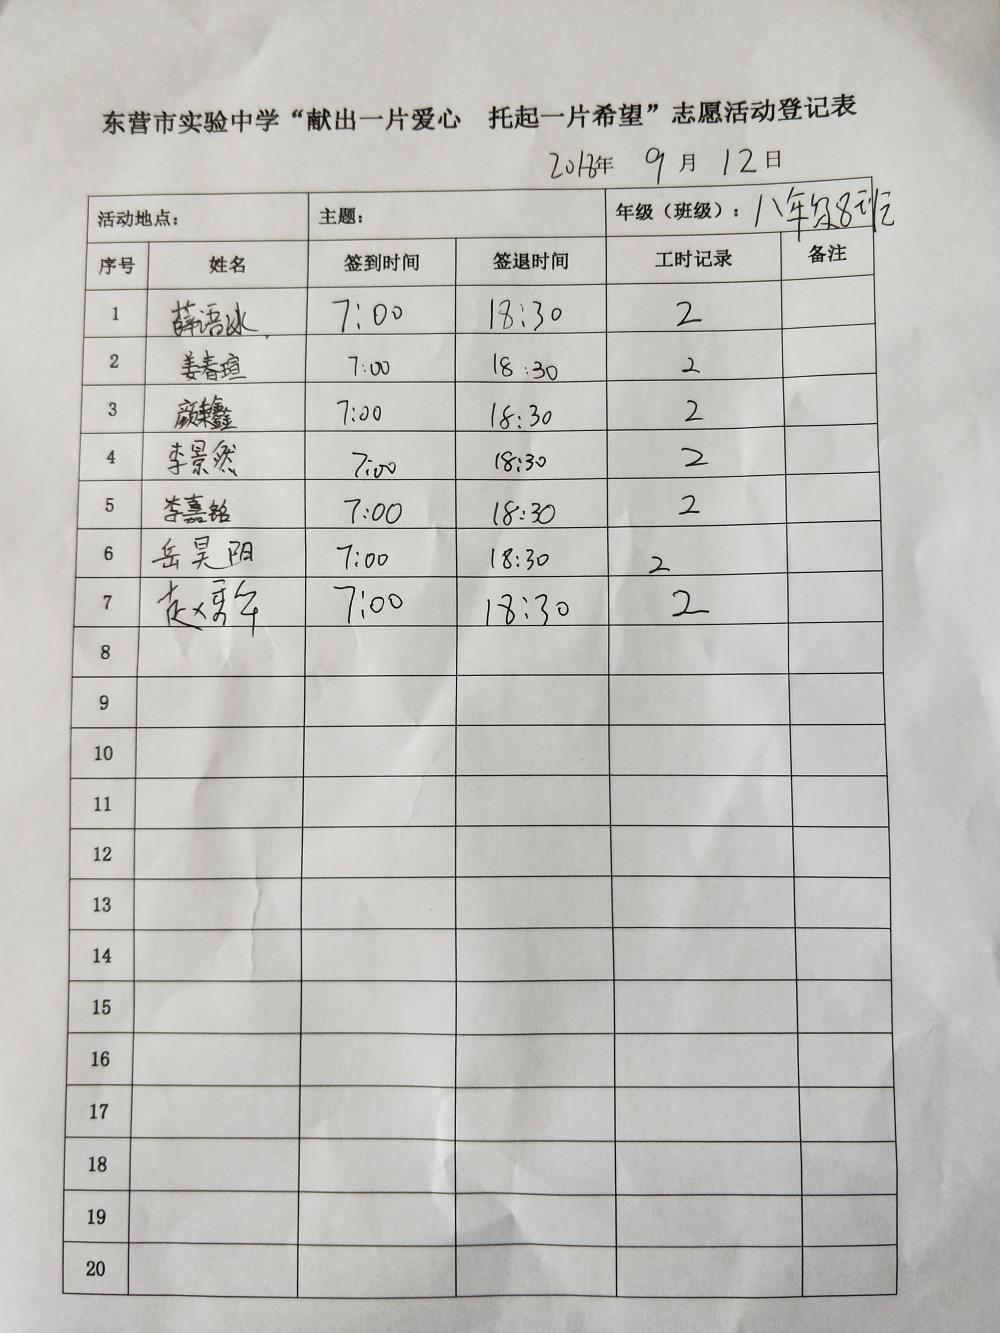 东营市实验中学“献出一片爱心 托起一片希望”志愿活动登记表
2018年 9月 12日
活动地点： 主题： 年级（班级）：八年级8班
序号 姓名 签到时间 签退时间 工时记录 备注
1 薛语冰 7:00 18:30 2
2 姜春瑄 7:00 18:30 2
3 颜荣鑫 7:00 18:30 2
4 李景然 7:00 18:30 2
5 李嘉铭 7:00 18:30 2
6 岳昊阳 7:00 18:30 2
7 赵 7:00 18:30 2
8
9
10
11
12
13
14
15
16
17
18
19
20